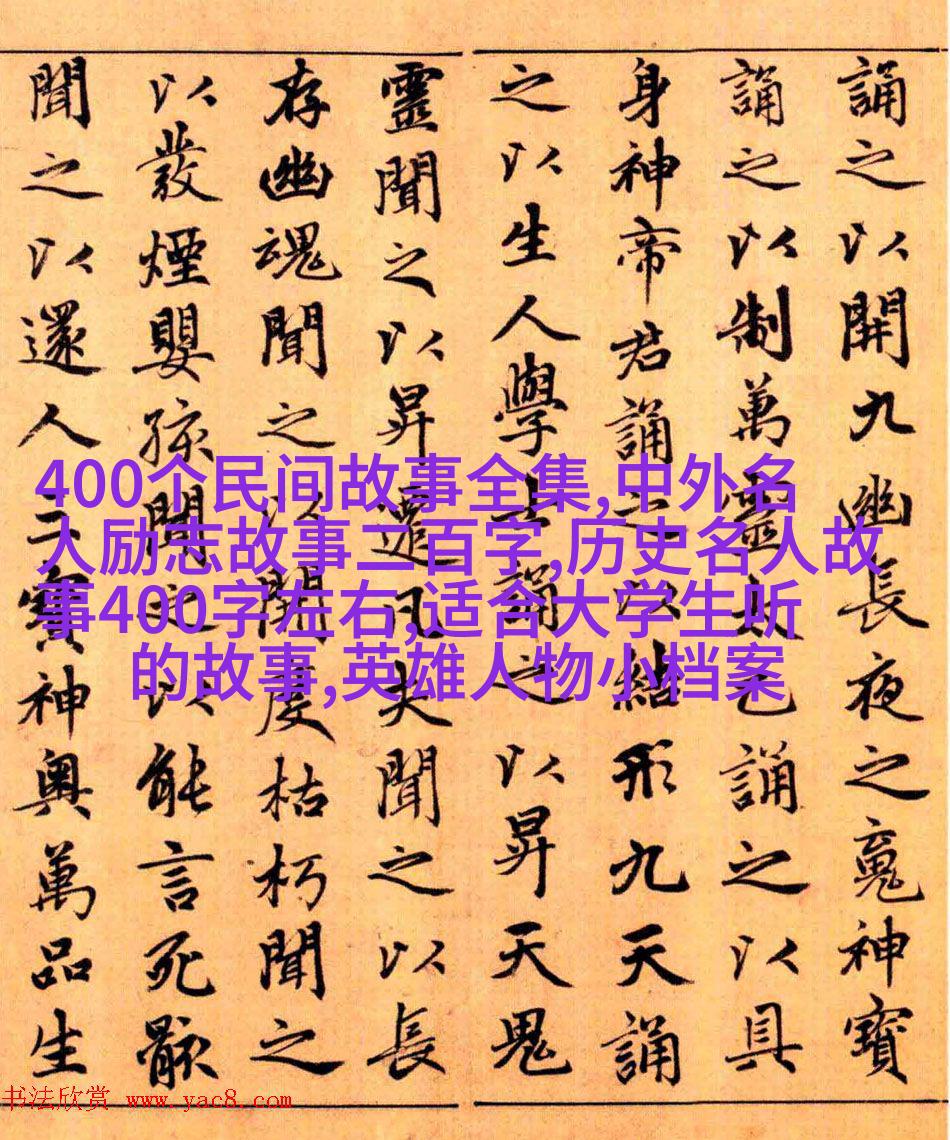 誦之以開九幽長夜之䰟神寶
誦之以制萬靈太乙誦之以具
身神帝君誦之以結形九天誦
之以生人學士誦之以昇天鬼
靈聞之以昇遷凡夫聞之以長
存幽魂聞之以開度枯朽聞之
以發煙嬰孩聞之以能言死骸
聞之以還人三寶神奧萬品生
400个民间故事全集,中外名
人励志故事二百字,历史名人故
事400字左右,适合大学生听
的故事,英雄人物小档案
书法欣赏 www.yac8.com